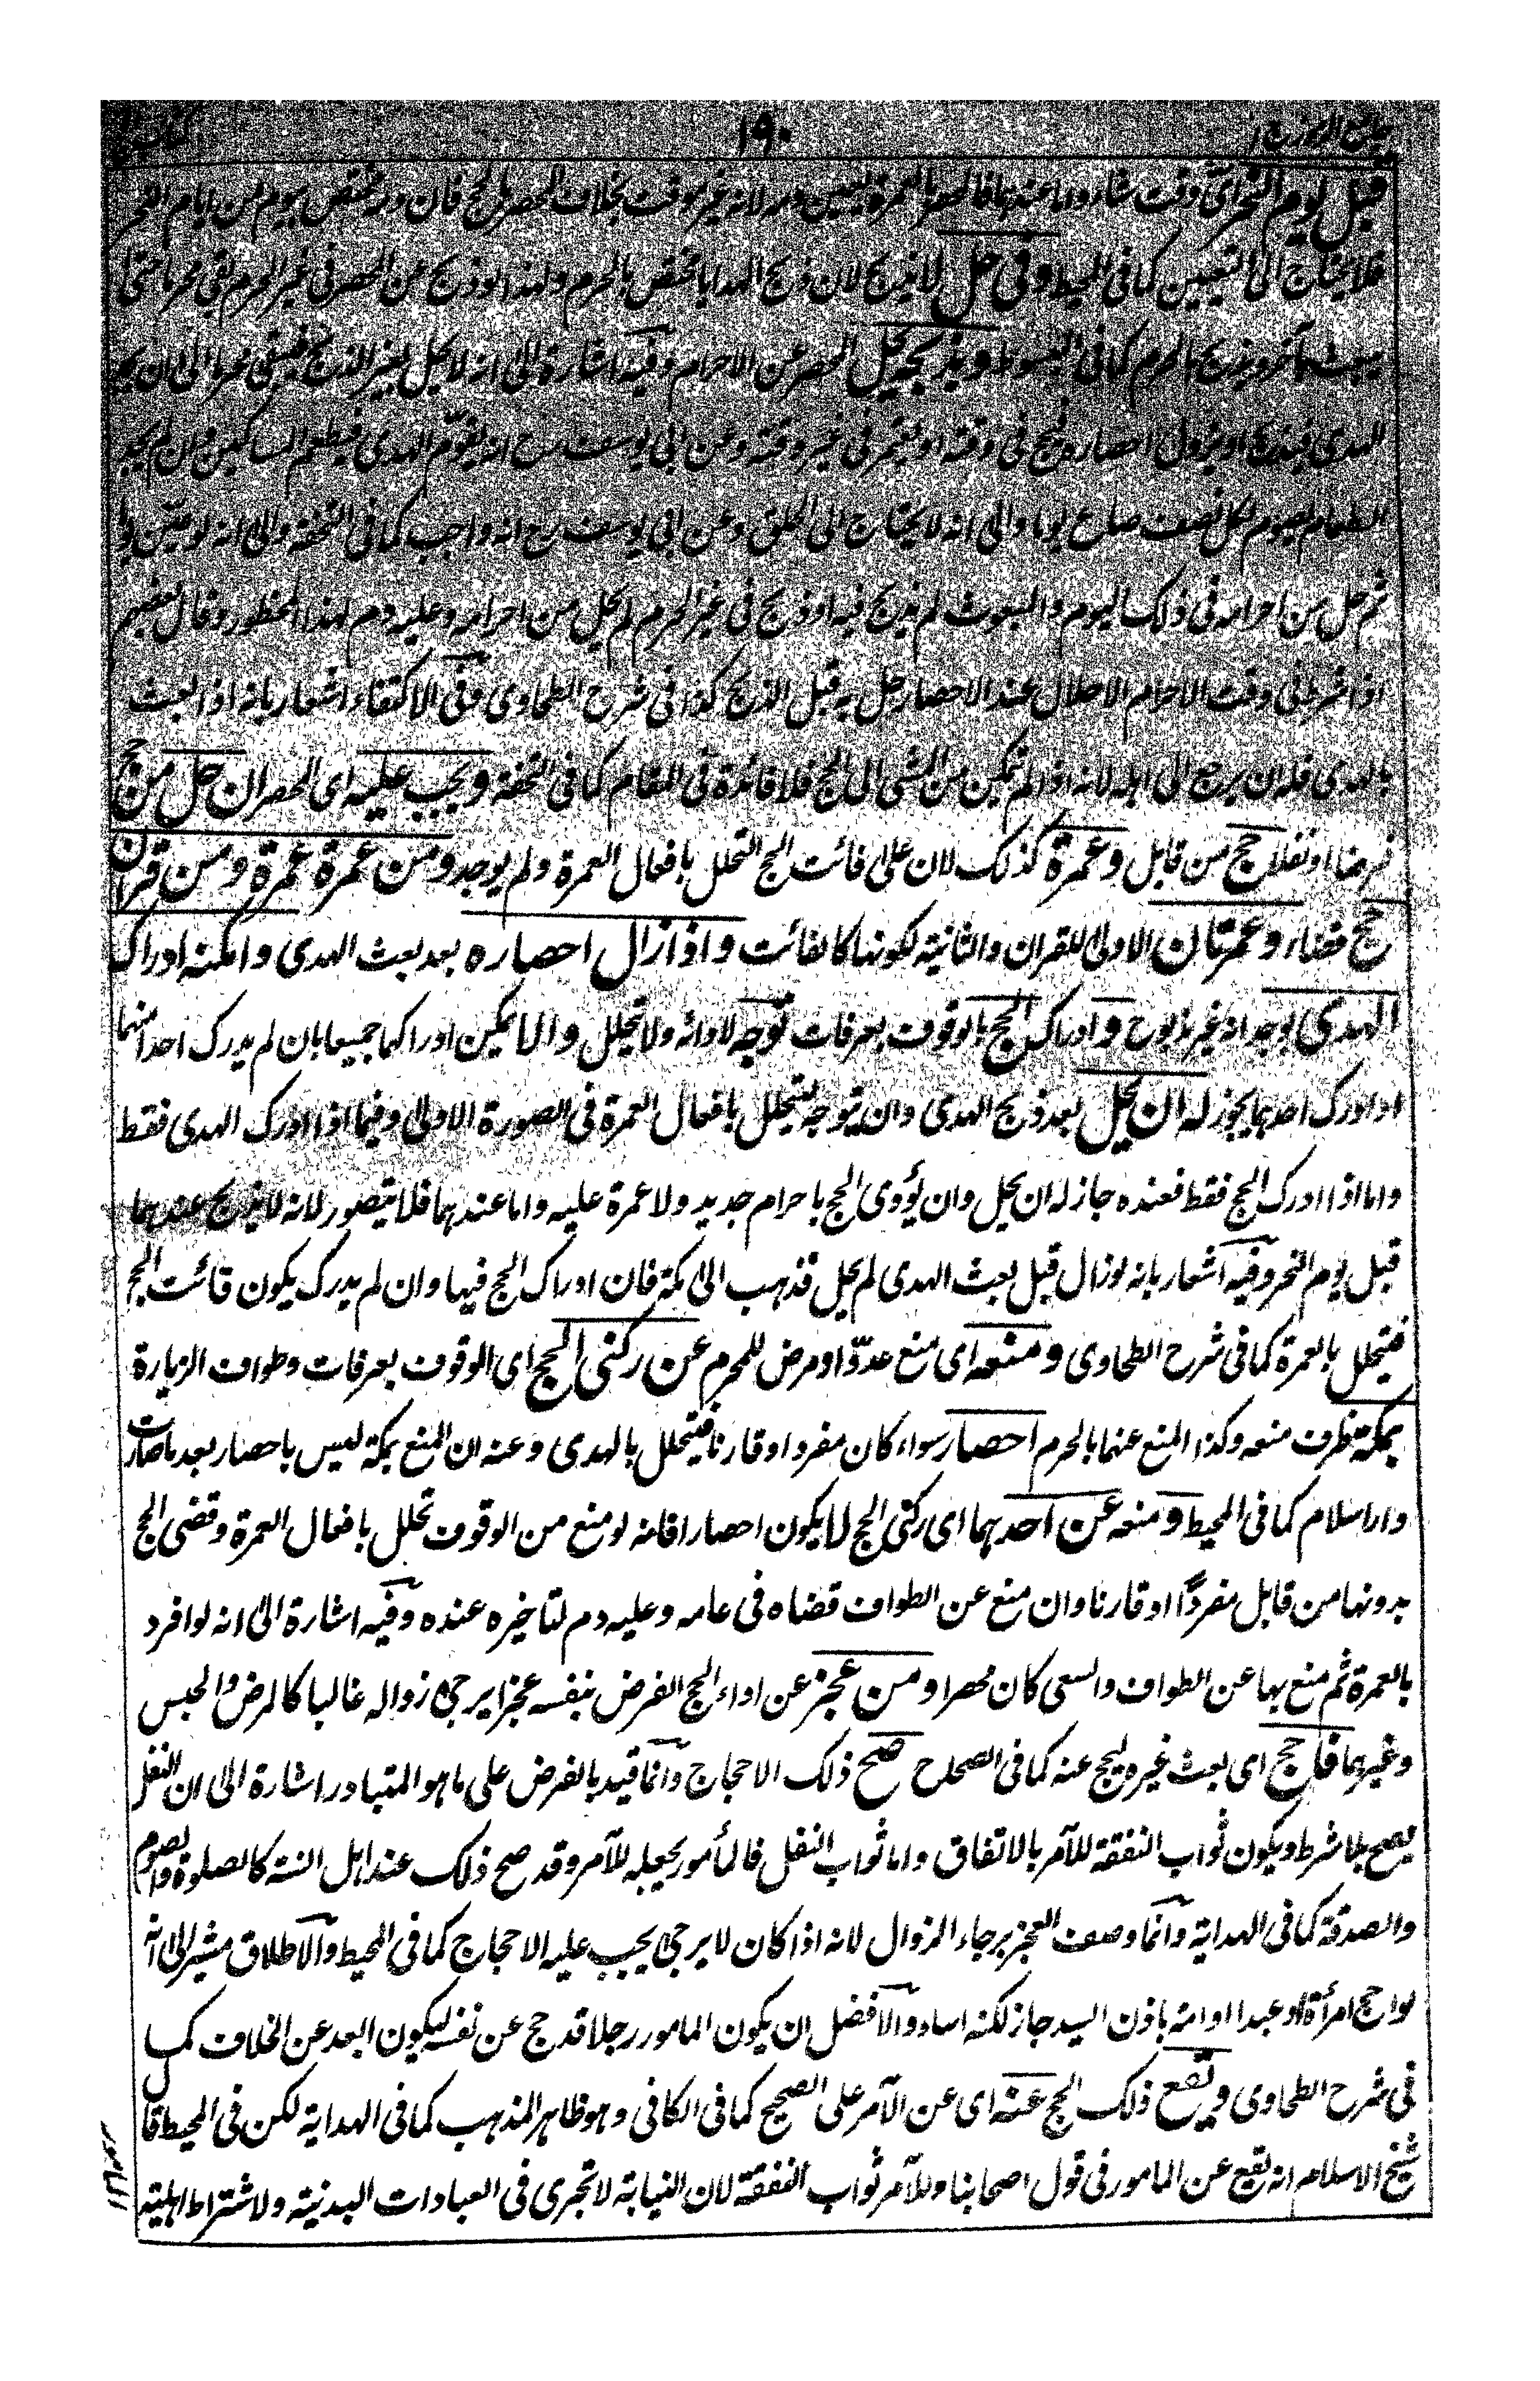 جامع الرموز ج ١ ١٩٠
قبل يوم النحر اى وقت شاء واما عندهما فالمحصر بالعمرة لانه غير موقت بخلاف المحصر بالحج فان دمه مختص بيوم من ايام النحر
فلا يحتاج الى التعيين كما فى المحيط وفى حل لا يذبح لان ذبح الهدايا مختص بالحرم ولهذا لو ذبح عن المحصر فى غير الحرم بقى محرما حتى
يبعث آخر ويذبح الحرم كما فى المبسوط وبذبحه يحل المحصر عن الاحرام وفيه اشارة الى انه لا يحل بغير الذبح فيبقى محرما الى ان يجد
الهدى فيذبح او يزول احصاره فيحج فى وقته او يعتمر فى غير وقته وعن ابى يوسف رح انه يقوّم الهدى فيطعم المساكين وان لم يجد
الطعام يصوم لكل نصف صاع يوما والى انه لا يحتاج الى الحلق وعن ابى يوسف رح انه واجب كما فى التحفة والى انه لو عيّن يوما
ثم حل من احرامه فى ذلك اليوم والمبعوث لم يذبح فيه او ذبح فى غير الحرم لم يحل من احرامه وعليه دم لهذا المحظور وقال بعضهم
اذا شرط فى وقت الاحرام الاحلال عند الاحصار حل به قبل الذبح كذا فى شرح الطحاوى وفى الاكتفاء اشعار بانه اذا بعث
بالهدى فله ان يرجع الى اهله لانه اذا لم يتمكن من المشى الى الحج فلا فائدة فى المقام كما فى التحفة ويجب عليه اى المحصر ان حل من حج
فرضا او نفلا حج من قابل وعمرة كذلك لان على فائت الحج التحلل بافعال العمرة ولم يوجد ومن عمرة عمرة ومن قران
حج قضاء وعمرتان الاولى للقران والثانية لكونها كالفائت واذا زال احصاره بعد بعث الهدى وامكنه ادراك
الهدى بوجدانه غير مذبوح وادراك الحج بالوقوف بعرفات توجه لادائه ولا يتحلل والا يمكن ادراكهما جميعا بان لم يدرك احدا منهما
او ادرك احدهما يجوز له ان يحل بعد ذبح الهدى وان يتوجه ليتحلل بافعال العمرة فى الصورة الاولى وفيما اذا ادرك الهدى فقط
واما اذا ادرك الحج فقط فعنده جاز له ان يحل وان يؤدى الحج باحرام جديد ولا عمرة عليه واما عندهما فلا يتصور لانه لا يذبح عندهما
قبل يوم النحر وفيه اشعار بانه لو زال قبل بعث الهدى لم يحل فذهب الى مكة فان ادراك الحج فيها وان لم يدرك يكون فائت الحج
فيتحلل بالعمرة كما فى شرح الطحاوى ومنعه اى منع عدوّ او مرض للمحرم عن ركنى الحج اى الوقوف بعرفات وطواف الزيارة
بمكة ظرف منعه وكذا المنع عنهما بالحرم احصار سواء كان مفردا او قارنا فيتحلل بالهدى وعنه ان المنع بمكة ليس باحصار بعد ما صارت
دار اسلام كما فى المحيط ومنعه عن احدهما اى ركنى الحج لا يكون احصارا فانه لو منع من الوقوف تحلل بافعال العمرة وقضى الحج
بدونها من قابل مفردًا او قارنا وان منع عن الطواف قضاه فى عامه وعليه دم لتاخيره عنده وفيه اشارة الى انه لو افرد
بالعمرة ثم منع بها عن الطواف والسعى كان محصرا ومن عجز عن اداء الحج الفرض بنفسه عجزا يرجى زواله غالبا كالمرض والحبس
وغيرهما فاحج اى بعث غيره ليحج عنه كما فى الصحاح صح ذلك الاحجاج وانما قيد بالفرض على ما هو المتبادر اشارة الى ان النفل
يصح بلا شرط ويكون ثواب النفقة للآمر بالاتفاق واما ثواب النفل فالمأمور يجعله للآمر وقد صح ذلك عند اهل السنة كالصلوة والصوم
والصدقة كما فى الهداية وانما وصف العجز برجاء الزوال لانه اذا كان لا يرجى يجب عليه الاحجاج كما فى المحيط والاطلاق مشير الى انه
لو احج امرأة او عبدا او امة باذن السيد جاز لكنه اساء والافضل ان يكون المامور رجلا قد حج عن نفسه ليكون ابعد عن الخلاف كما
فى شرح الطحاوى ويقع ذلك الحج عنه اى عن الآمر على الصحيح كما فى الكافى وهو ظاهر المذهب كما فى الهداية لكن فى المحيط قال
شيخ الاسلام انه يقع عن المامور فى قول اصحابنا وللآمر ثواب النفقة لان النيابة لا تجرى فى العبادات البدنية ولاشتراط اهلية